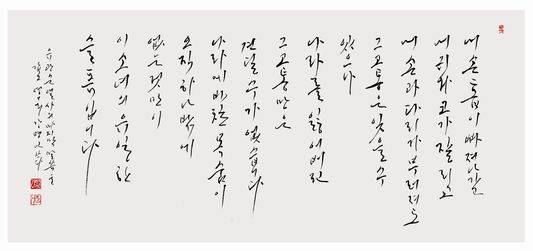 내 손톱이
내 귀와 코가 잘리고
내 손과 다리가 부러져도
그 고통은 잊을 수
있으나
나라를 잃어버린
그 고통만은
견딜 수가 없습니다
나라에 바칠 목숨이
오직 하나밖에
없는 것만이
이 소녀의 유일한
슬픔입니다
유관순 열사의 마지막 말씀을